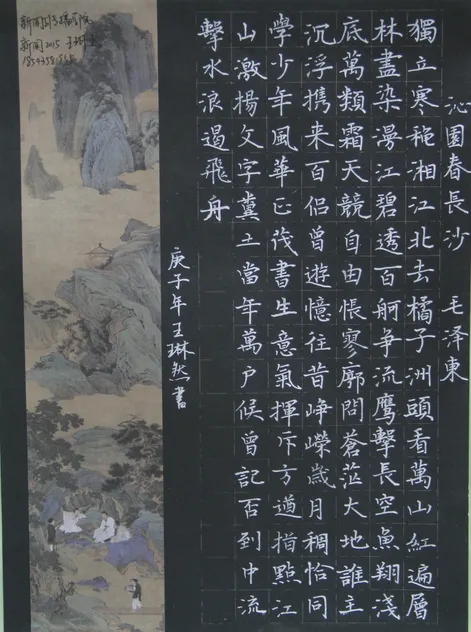 沁園春長沙 毛泽東
獨立寒穐湘江北去橘子洲頭看萬山紅遍層
林盡染漫江碧透百舸争流鹰擊長空魚翔淺
底萬類霜天競自由悵寥廓問蒼茫大地誰主
沉浮携来百侣曾遊憶往昔峥嶸歲月稠恰同
學少年風華正茂書生意氣揮斥方遒指點江
山激揚文字糞土當年萬户侯曾記否到中流
擊水浪遏飛舟
庚子年王琳然書
新闻2015 王琳